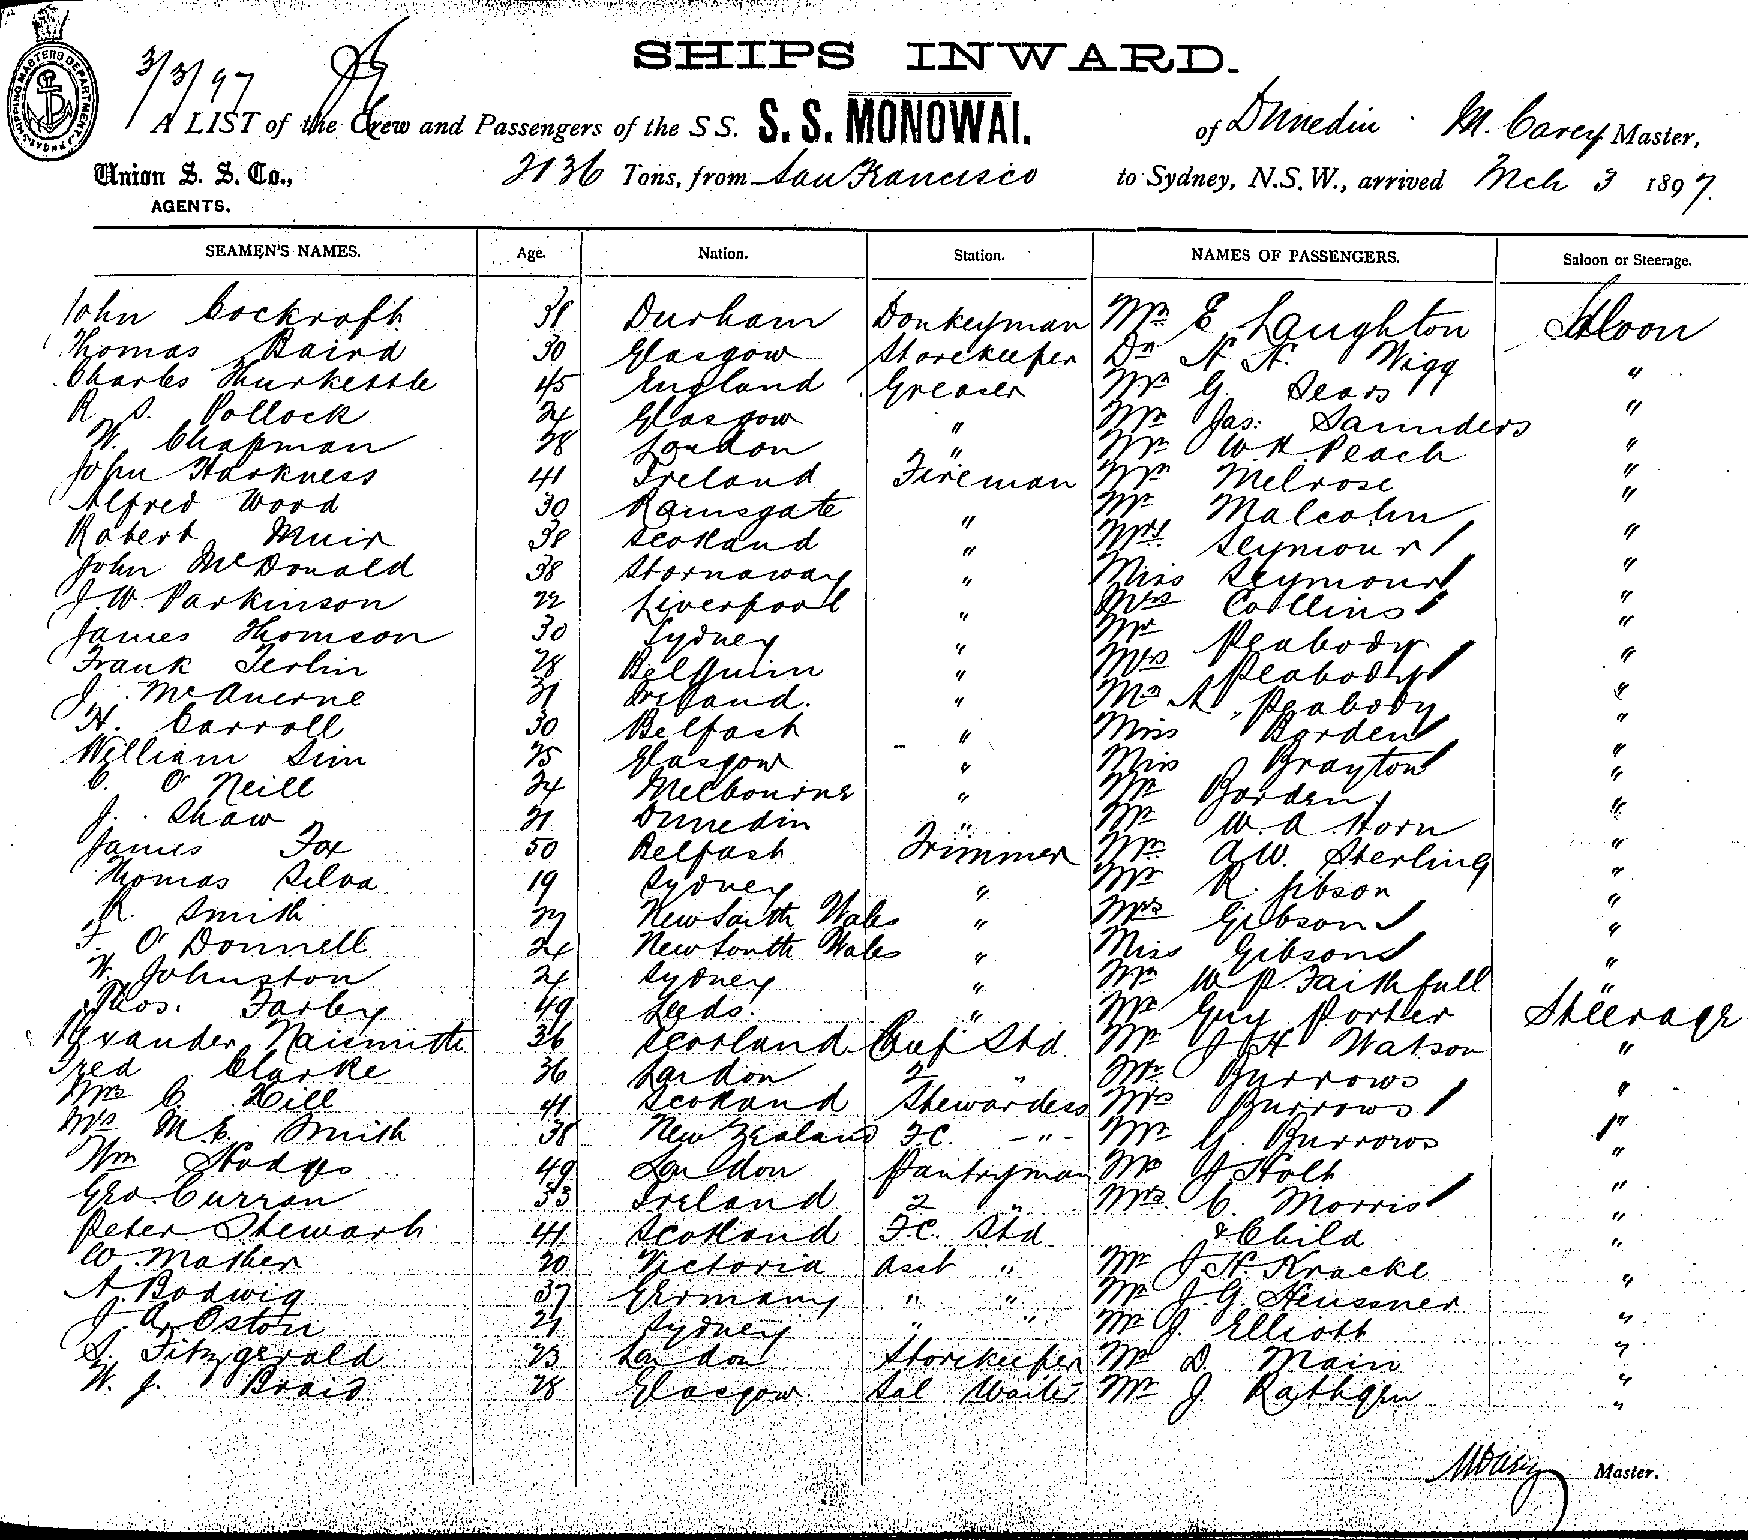 SHIPPING MASTERS DEPARTMENT SYDNEY
3/3/97
SHIPS INWARD.
A LIST of the Crew and Passengers of the SS. S. S. MONOWAI. of Dunedin M. Carey Master,
Union S. S. Co., 2136 Tons, from San Francisco to Sydney, N.S.W., arrived Mch 3 1897.
AGENTS.
SEAMEN'S NAMES. Age. Nation. Station. NAMES OF PASSENGERS. Saloon or Steerage.
John Cockroft 38 Durham Donkeyman Mr E Laughton Saloon
Thomas Baird 30 Glasgow Storekeeper Dr N. N. Wigg "
Charles Thurkettle 45 England Greaser Mr G. Sears "
R S. Pollock 24 Glasgow " Mr Jas: Saunders "
W. Chapman 28 London " Mr W. H. Peach "
John Harkness 41 Ireland Fireman Mr Melrose "
Alfred Wood 30 Ramsgate " Mr Malcolm "
Robert Muir 38 Scotland " Mrs Seymour "
John McDonald 38 Stornaway " Miss Seymour "
J. W. Parkinson 22 Liverpool " Mrs Collins "
James Thomson 30 Sydney " Mr Peabody "
Frank Terlin 28 Belguim " Mrs Peabody "
J. McAnerne 31 Ireland. " Mr A. Peabody "
H. Carroll 30 Belfast " Miss Borden "
William Sim 25 Glasgow " Miss Brayton "
C. O'Neill 24 Melbourne " Mr Borden "
J. Shaw 21 Dunedin " Mr W. A Horn "
James Fox 50 Belfast Trimmer Mr A. W. Sterling "
Thomas Silva 19 Sydney " Mr R Gibson "
R. Smith 27 New South Wales " Mrs Gibson "
F. O'Donnell 24 New South Wales " Miss Gibson "
W. Johnston 24 Sydney " Mr W P Faithfull "
Thos. Farley 49 Leeds. " Mr Guy Porter Steerage
Alexander Naismith 36 Scotland Std Mr J H Watson "
Fred Clarke 36 London 2 " Mr Burrows "
Mrs C. Hill 41 Scotland Stewardess Mrs Burrows "
Mrs M. E. Smith 38 New Zealand F.C. -"- Mr G. Burrows "
Wm Hodges 49 London Pantryman Mr J Holt "
Geo Curran 33 Ireland 2 " Mrs. C. Morris "
Peter Stewart 41 Scotland F.C. Std & Child "
W. Mather 20 Victoria Asst " Mr J H. Kracke "
A. Bodwig 37 Germany " " Mr J. G. Heussner "
J. A. Oston 21 Sydney " " Mr J. Elliott "
S. Fitzgerald 23 London Storekeeper Mr D. Main "
W. J. Braid 28 Glasgow Sal Waiter Mr J. Rathgen "
M Carey Master.